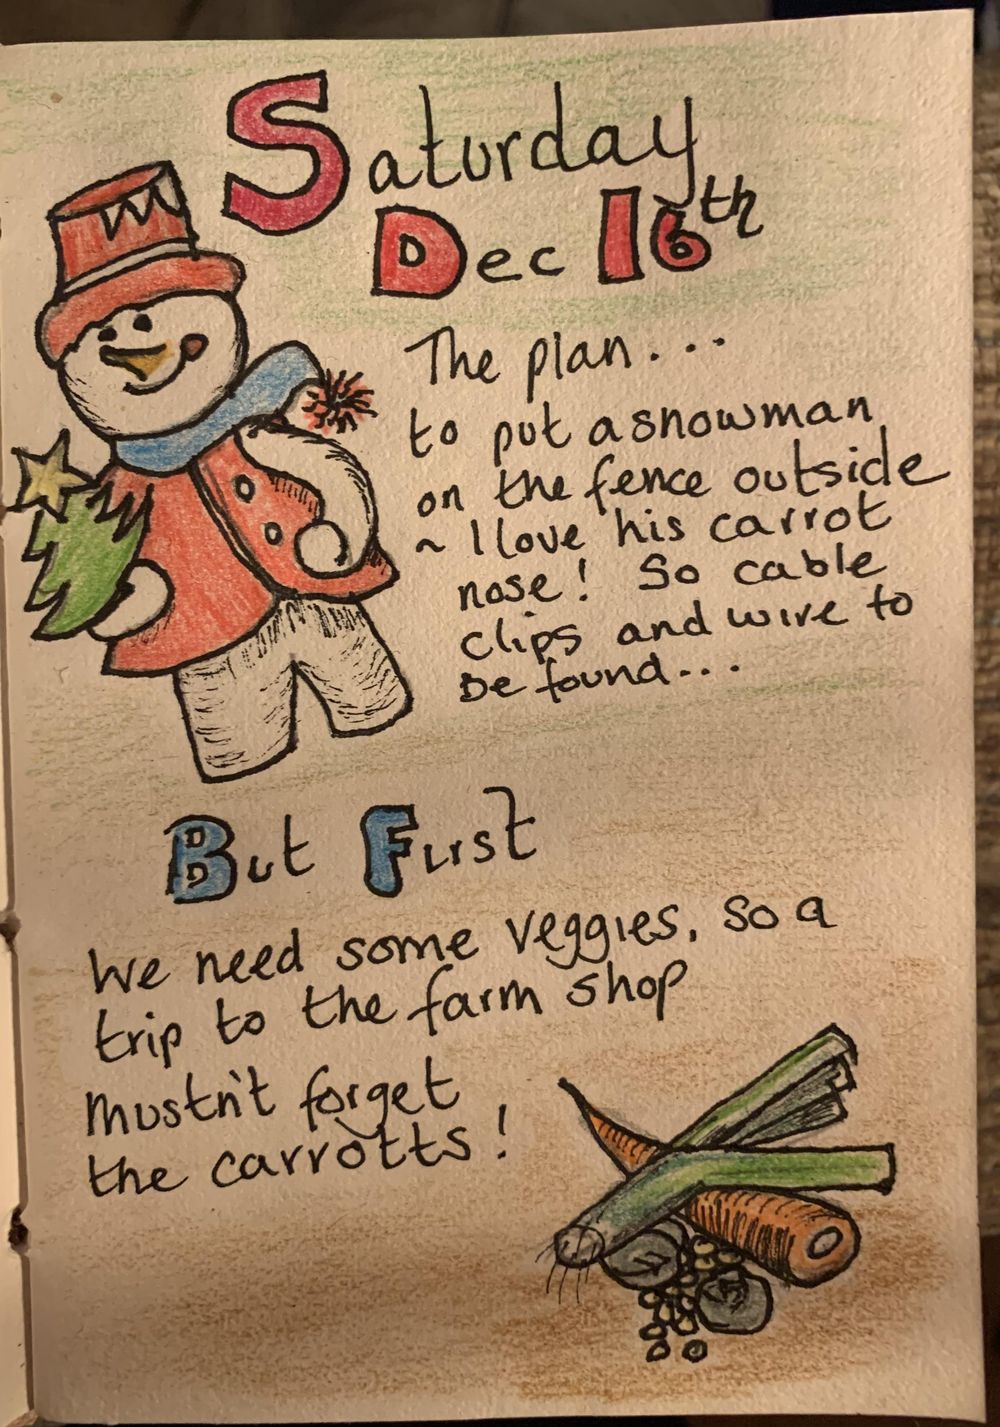 Saturday
Dec 16th
The plan...
to put a snowman
on the fence outside
~ I love his carrot
nose! So cable
clips and wire to
be found...
But First
We need some veggies, so a
trip to the farm shop
Mustn't forget
the carrotts!